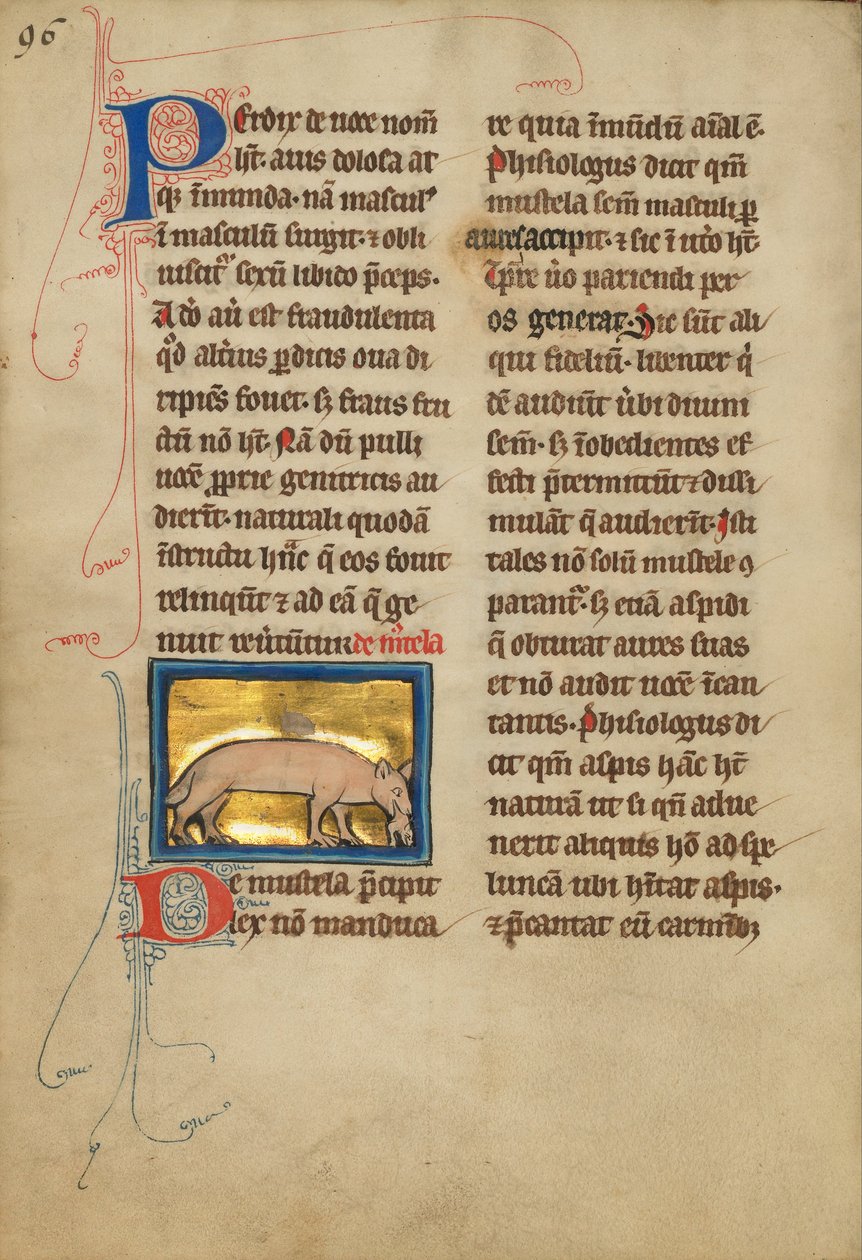 96
Perdix de uoce nom̄
ht̄. auis dolosa at
qꝫ īmunda. nā mascul᷒
ī masculū surgit. ⁊ obli
uiscit᷑ sexū libido p̄ceps.
Adeo aū est fraudulenta
qd̊ alt̓ius ꝑdicis oua di
ripiēs fouet. sꝫ fraus fru
ctū nō ht̄. Nā dū pulli
uocē ꝓprie genitricis au
dierīt. naturali quodā
īstructu hāc q̄ eos fouit
relinqūt ⁊ ad eā q̄ ge
nuit reu̓tūtur de m̓tela
De mustela p̄cipit
lex nō manduca
re quia īmūdū aīal ē.
Phisiologus dicit qm̄
mustela sem̄ masculi ꝑ
aures accipit. ⁊ sic ī ut̓o ht̄.
Tp̄re ùo pariendi per
os generat. Sic sūt ali
qui fideliū. libenter q̓
dē audiūt ùbi diuini
sem̄. sꝫ īobedientes ef
fecti p̄termittūt ⁊ dissi
mulāt q̄ audierīt. Isti
tales nō solū mustele ꝯ
parant᷑. sꝫ etiā aspidi
q̄ obturat aures suas
et nō audit uocē īcan
tantis. Phisiologus di
cit qm̄ aspis hāc ht̄
naturā ut si qn̄ adue
nerit aliquis hō ad spe
luncā ubi hītat aspis.
⁊ p̄cantat eū carmībꝫ